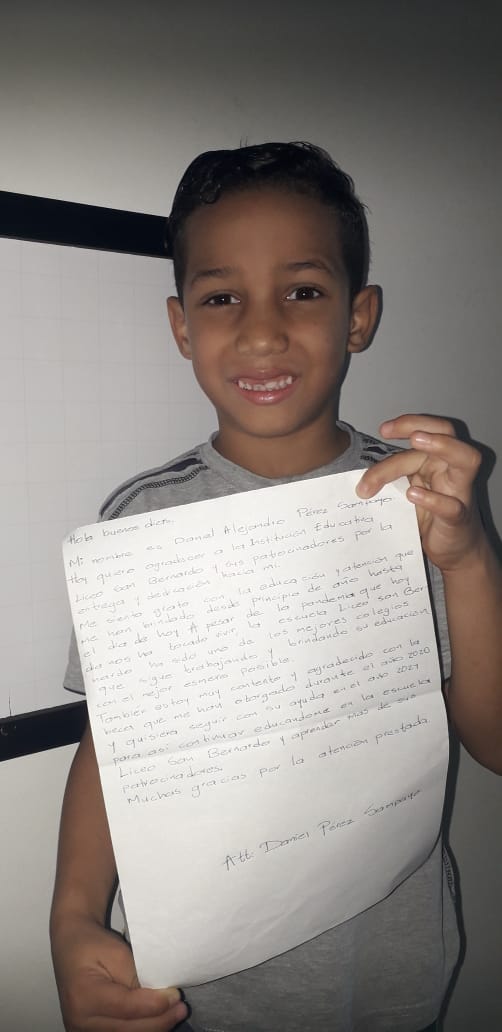 Hola buenos dias,
Mi nombre es Daniel Alejandro Pérez Sampayo.
Hoy quiero agradecer a la Institución Educativa
Liceo San Bernardo y sus patrocinadores por la
entrega y dedicación hacia mi.
Me siento grato con la educación y atención que
me han brindado desde principio de año hasta
el dia de hoy. A pesar de la pandemia que hoy
dia nos ha tocado vivir la escuela Liceo san Ber
nardo ha sido uno de los mejores colegios
que sigue trabajando y brindando su educacion
con el mejor esmero posible.
Tambien estoy muy contento y agradecido con la
beca que me han otorgado durante el año 2020
y quisiera seguir con su ayuda en el año 2021
para asi continuar educandome en la escuela
Liceo San Bernardo y aprender mas de sus
patrocinadores.
Muchas gracias por la atención prestada.
Att: Daniel Pérez Sampayo